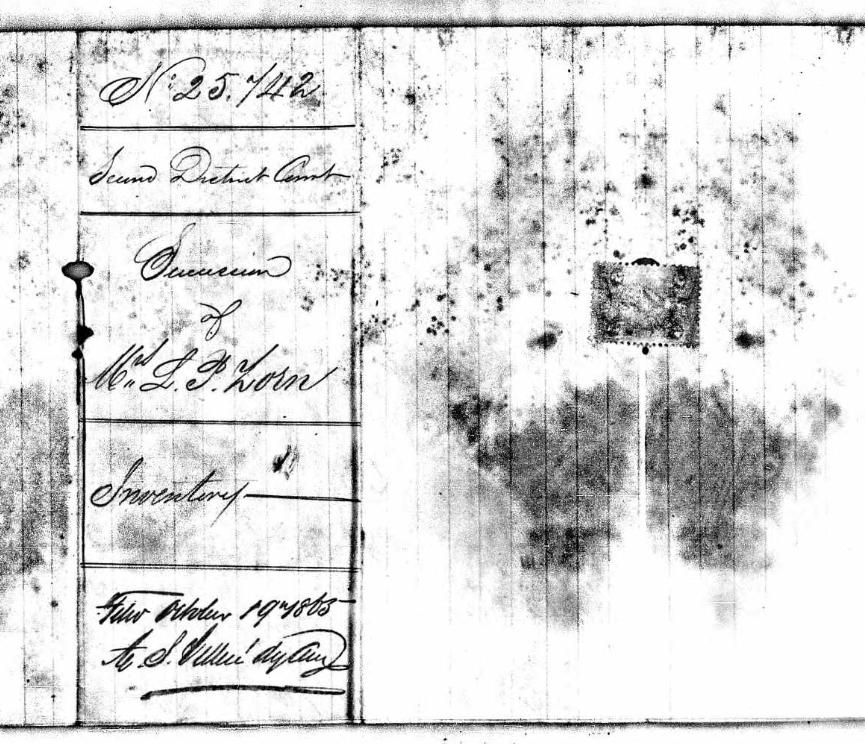 No. 25.742
Second District Court
Succession
of
Mrs L. P. Zorn
Inventory
Filed October 19th 1865
A. S. Villeré dy Clerk